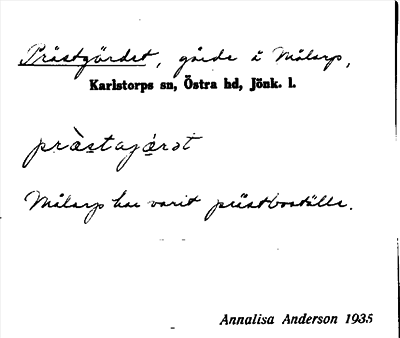 Prästgärdet, gärde å Målarp,
Karlstorps sn, Östra hd, Jönk. l.
Målarp har varit prästboställe.
Annalisa Anderson 1935